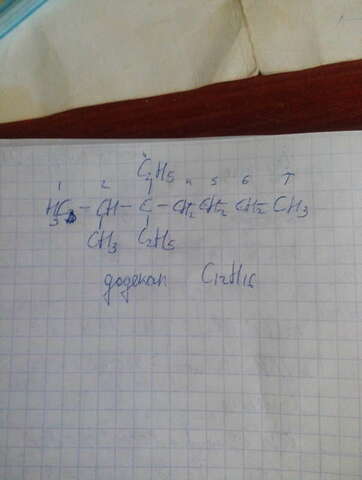 C₂H₅
1 2 4 5 6 7
H₃C - CH - C - CH₂ CH₂ - CH₂ CH₃
CH₃ C₂H₅
додекан C₁₂H₁₆